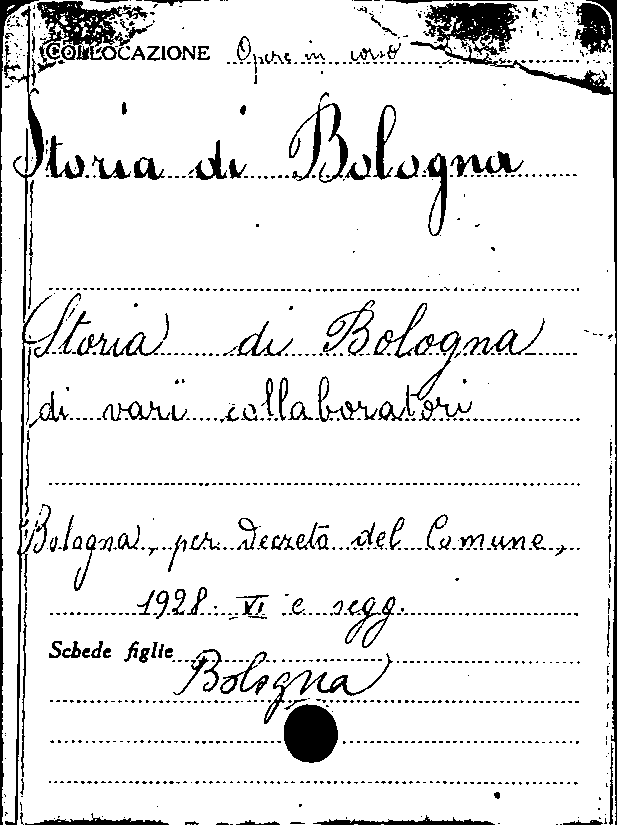 COLLOCAZIONE Opere in corso
Storia di Bologna
Storia di Bologna
di varï collaboratori
Bologna, per Decreto del Comune,
1928. VI e segg.
Schede figlie
Bologna